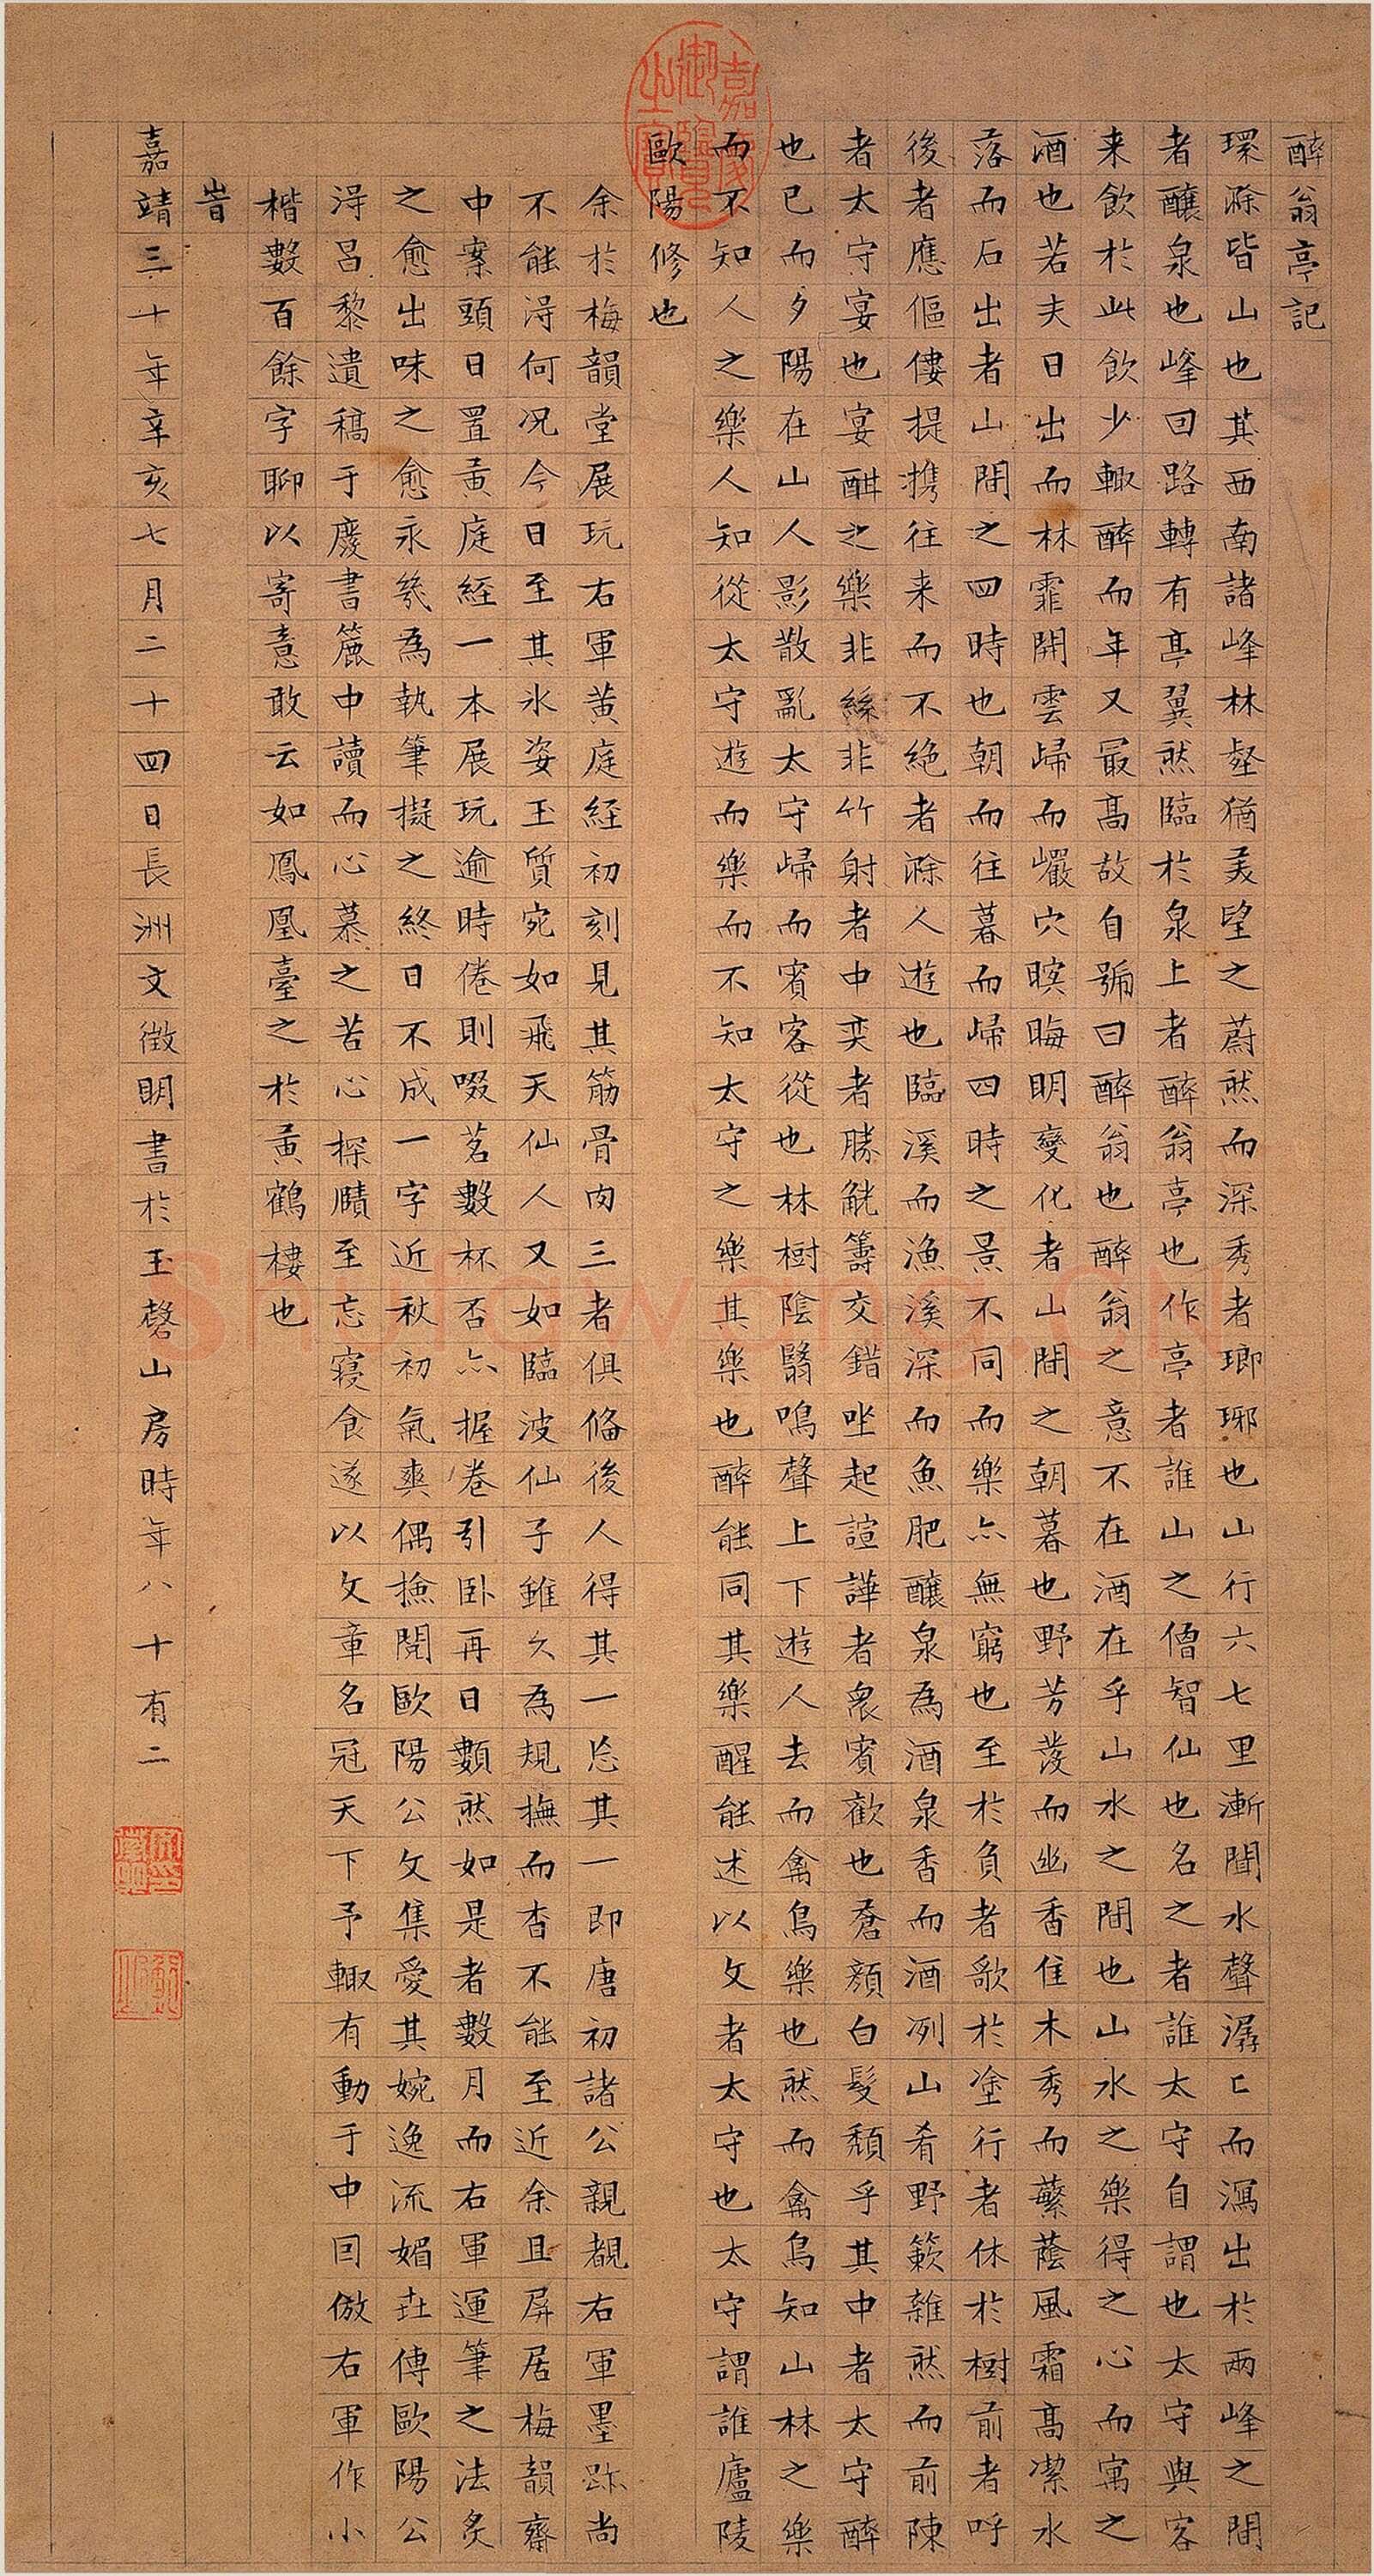 醉翁亭記
環滁皆山也其西南諸峰林壑猶美望之蔚然而深秀者瑯琊也山行六七里漸聞水聲潺匕而瀉出於兩峰之間
者釀泉也峰回路轉有亭翼然臨於泉上者醉翁亭也作亭者誰山之僧智仙也名之者誰太守自謂也太守與客
来飲於此飲少輙醉而年又最髙故自號曰醉翁也醉翁之意不在酒在乎山水之間也山水之樂得之心而寓之
酒也若夫日出而林霏開雲歸而巖穴暝晦明變化者山間之朝暮也野芳發而幽香佳木秀而蘩蔭風霜髙潔水
落而石出者山間之四時也朝而往暮而歸四時之景不同而樂亦無窮也至於負者歌於塗行者休於樹前者呼
後者應傴僂提携往来而不絶者滁人遊也臨溪而漁溪深而魚肥釀泉為酒泉香而酒冽山肴野簌雜然而前陳
者太守宴也宴酣之樂非絲非竹射者中奕者勝觥籌交錯坐起諠譁者衆賓歡也蒼顏白髮頹乎其中者太守醉
也已而夕陽在山人影散亂太守歸而賓客從也林樹陰翳鳴聲上下遊人去而禽鳥樂也然而禽鳥知山林之樂
而不知人之樂人知從太守遊而樂而不知太守之樂其樂也醉能同其樂醒能述以文者太守也太守謂誰廬陵
歐陽修也
余於梅韻堂展玩右軍黄庭經初刻見其筋骨肉三者俱備後人得其一忘其一即唐初諸公親覩右軍墨跡尚
不能得何况今日至其氷姿玉質宛如飛天仙人又如臨波仙子雖久為規撫而杳不能至近余且屏居梅韻齋
中案頭日置黄庭經一本展玩逾時倦則啜茗數杯否亦握卷引卧再日數然如是者數月而右軍運筆之法炙
之愈出味之愈永幾為執筆擬之終日不成一字近秋初氣爽偶撿閱歐陽公文集愛其婉逸流媚盐傳歐陽公
得昌黎遺稿于慶書簏中讀而心慕之苦心探賾至忘寢食遂以文章名冠天下予輙有動于中囙倣右軍作小
楷數百餘字聊以寄意敢云如鳳凰臺之於黄鶴樓也
旹
嘉靖三十年辛亥七月二十四日長洲文徵明書於玉磬山房時年八十有二
嘉慶御覽之寶
shufawang.CN